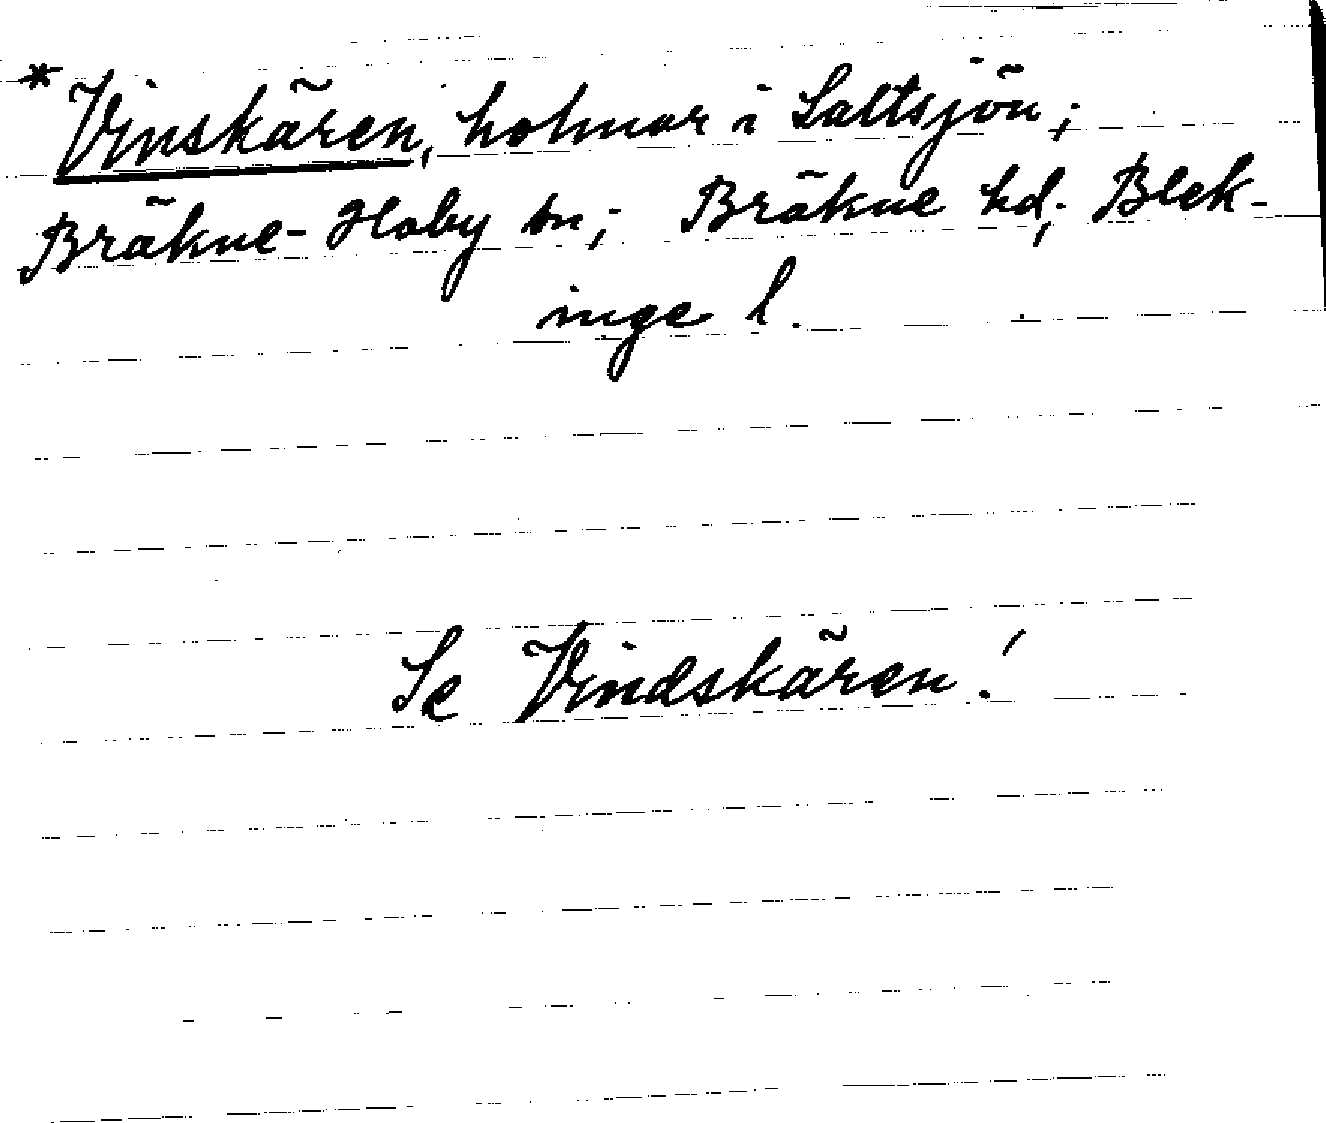 *Vinskären, holmar i Saltsjön;
Bräkne-Hoby sn; Bräkne hd; Blek-
inge l.
Se Vindskären!